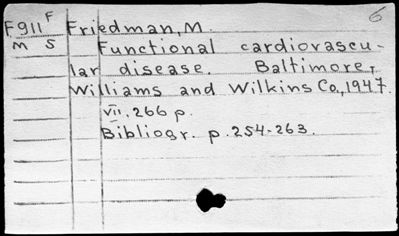 F911 F Friedman, M. 6
M S Functional cardiovascu-
lar disease. Baltimore,
Williams and Wilkins Co., 1947.
VII, 266 p.
Bibliogr. p. 254-263.